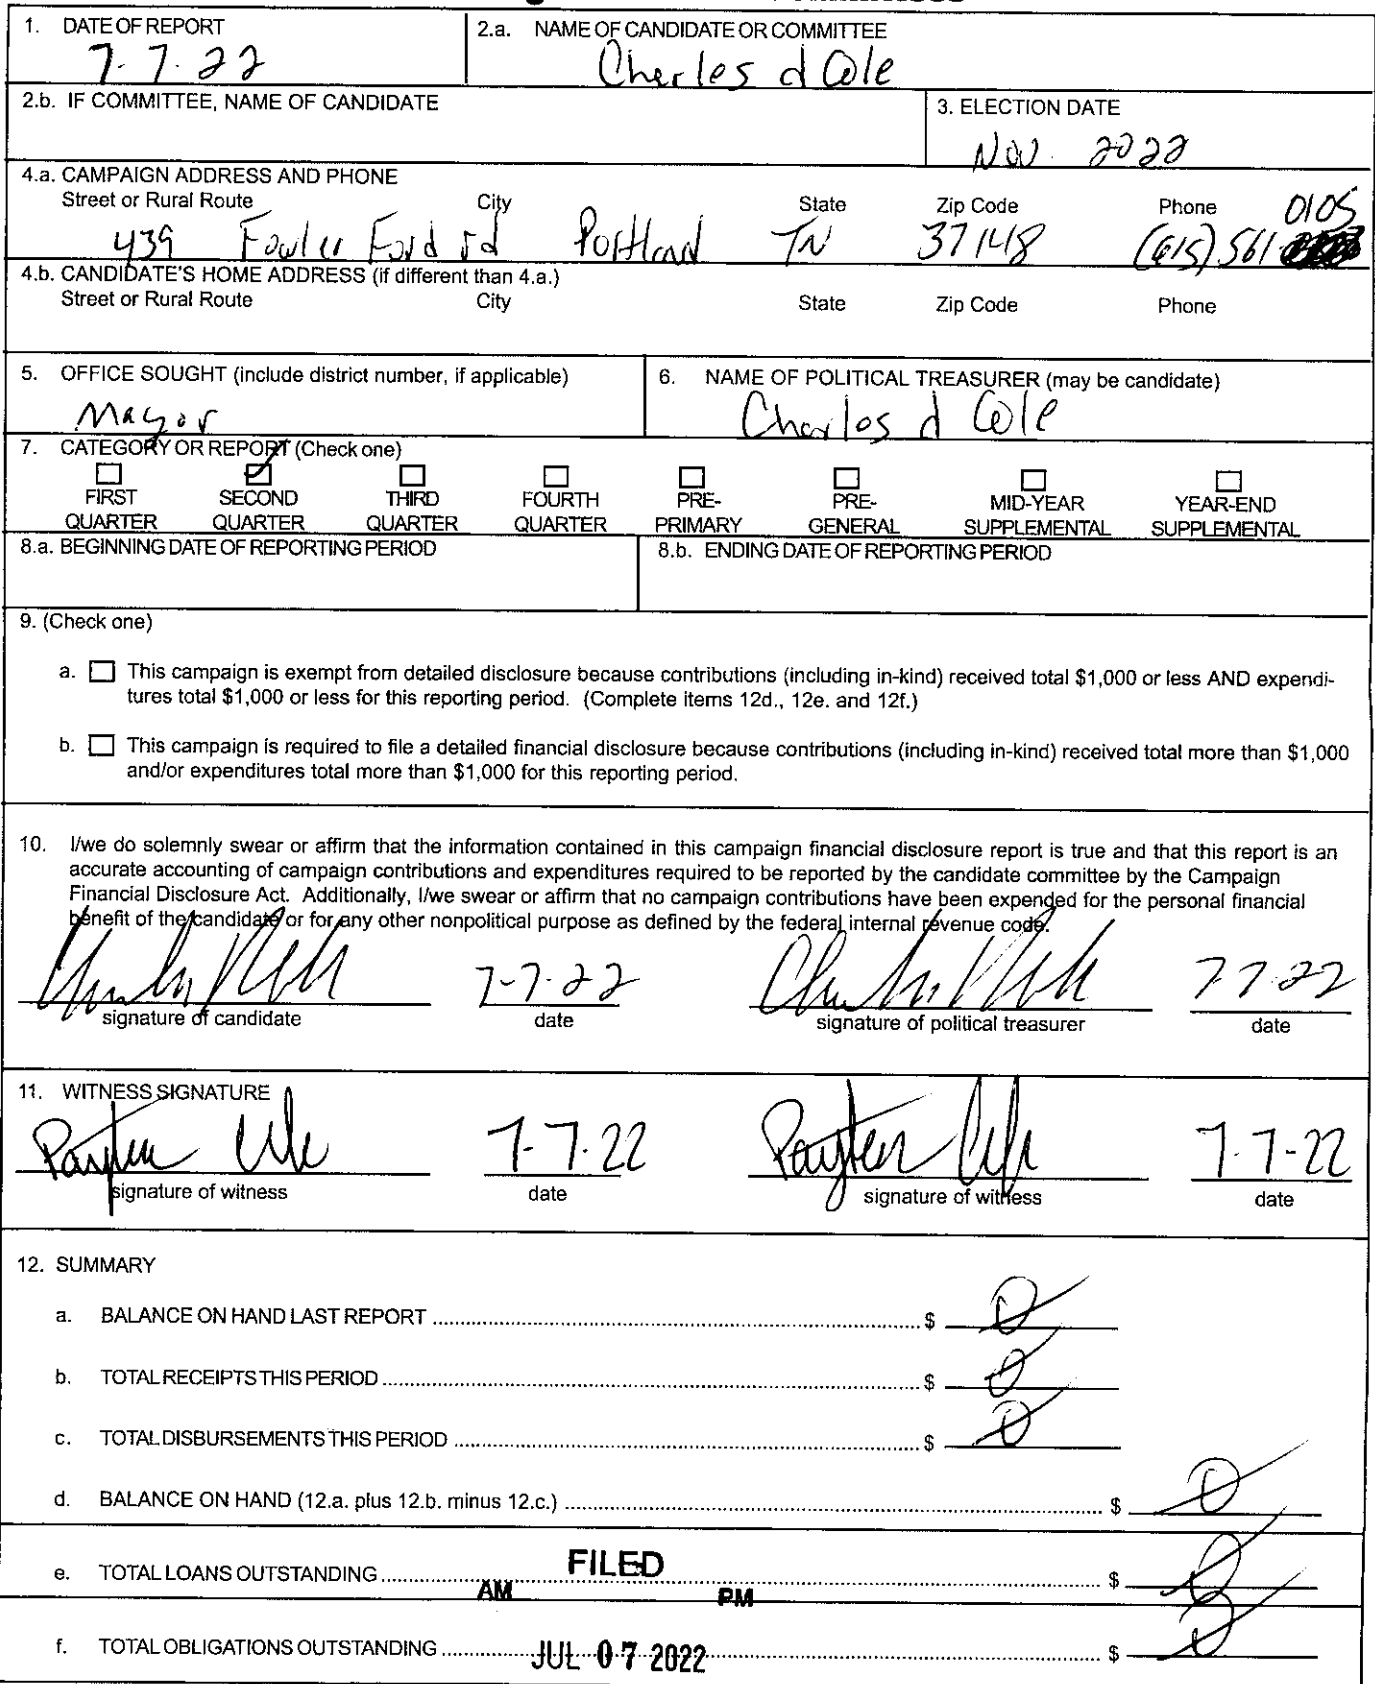 1. DATE OF REPORT
7-7-22
2.a. NAME OF CANDIDATE OR COMMITTEE
Charles d Cole
2.b. IF COMMITTEE, NAME OF CANDIDATE
3. ELECTION DATE
Nov. 2022
4.a. CAMPAIGN ADDRESS AND PHONE
Street or Rural Route City State Zip Code Phone 0105
439 Fowler Ford rd Portland TN 37148 (615) 561
4.b. CANDIDATE'S HOME ADDRESS (if different than 4.a.)
Street or Rural Route City State Zip Code Phone
5. OFFICE SOUGHT (include district number, if applicable)
Mayor
6. NAME OF POLITICAL TREASURER (may be candidate)
Charles d Cole
7. CATEGORY OR REPORT (Check one)
FIRST SECOND THIRD FOURTH PRE- PRE- MID-YEAR YEAR-END
QUARTER QUARTER QUARTER QUARTER PRIMARY GENERAL SUPPLEMENTAL SUPPLEMENTAL
8.a. BEGINNING DATE OF REPORTING PERIOD
8.b. ENDING DATE OF REPORTING PERIOD
9. (Check one)
a. This campaign is exempt from detailed disclosure because contributions (including in-kind) received total $1,000 or less AND expendi-
tures total $1,000 or less for this reporting period. (Complete items 12d., 12e. and 12f.)
b. This campaign is required to file a detailed financial disclosure because contributions (including in-kind) received total more than $1,000
and/or expenditures total more than $1,000 for this reporting period.
10. I/we do solemnly swear or affirm that the information contained in this campaign financial disclosure report is true and that this report is an
accurate accounting of campaign contributions and expenditures required to be reported by the candidate committee by the Campaign
Financial Disclosure Act. Additionally, I/we swear or affirm that no campaign contributions have been expended for the personal financial
benefit of the candidate or for any other nonpolitical purpose as defined by the federal internal revenue code.
7-7-22 7-7-22
signature of candidate date signature of political treasurer date
11. WITNESS SIGNATURE
Payten Cole 7-7-22 Payten Cole 7-7-22
signature of witness date signature of witness date
12. SUMMARY
a. BALANCE ON HAND LAST REPORT $ 0
b. TOTAL RECEIPTS THIS PERIOD $ 0
c. TOTAL DISBURSEMENTS THIS PERIOD $ 0
d. BALANCE ON HAND (12.a. plus 12.b. minus 12.c.) $ 0
e. TOTAL LOANS OUTSTANDING $ 0
FILED
AM PM
f. TOTAL OBLIGATIONS OUTSTANDING $ 0
JUL 07 2022